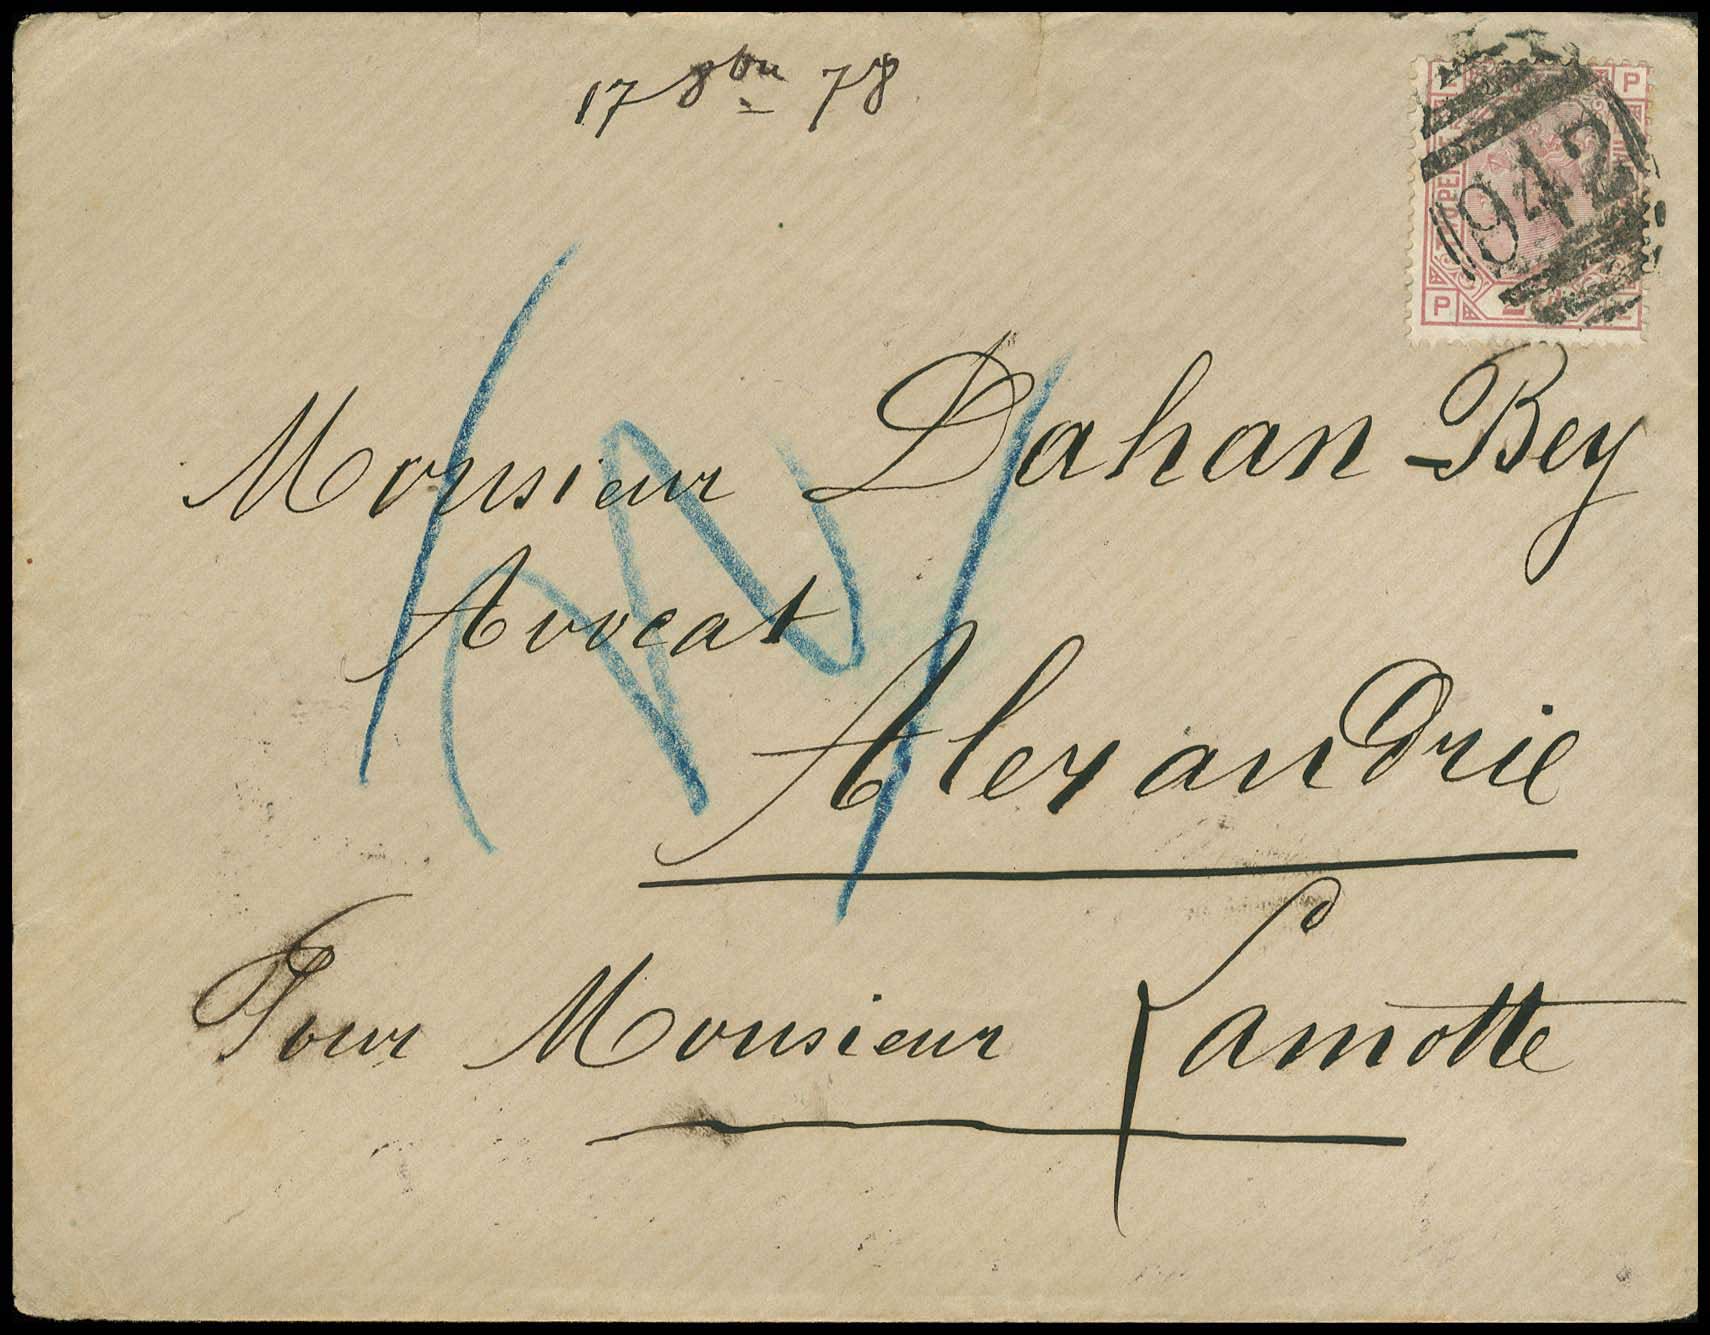 17 8bre 78
942
P
P
Monsieur Dahan Bey
Avocat
Alexandrie
Pour Monsieur Lamotte